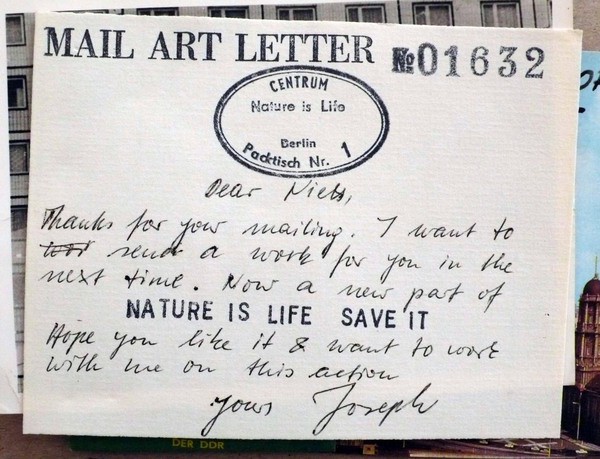 MAIL ART LETTER № 01632
CENTRUM
Nature is Life
Berlin
Packtisch Nr. 1
Dear Niels,
Thanks for your mailing. I want to
send a work for you in the
next time. Now a new part of
NATURE IS LIFE SAVE IT
Hope you like it & want to work
with me on this action
yours Joseph
DER DDR